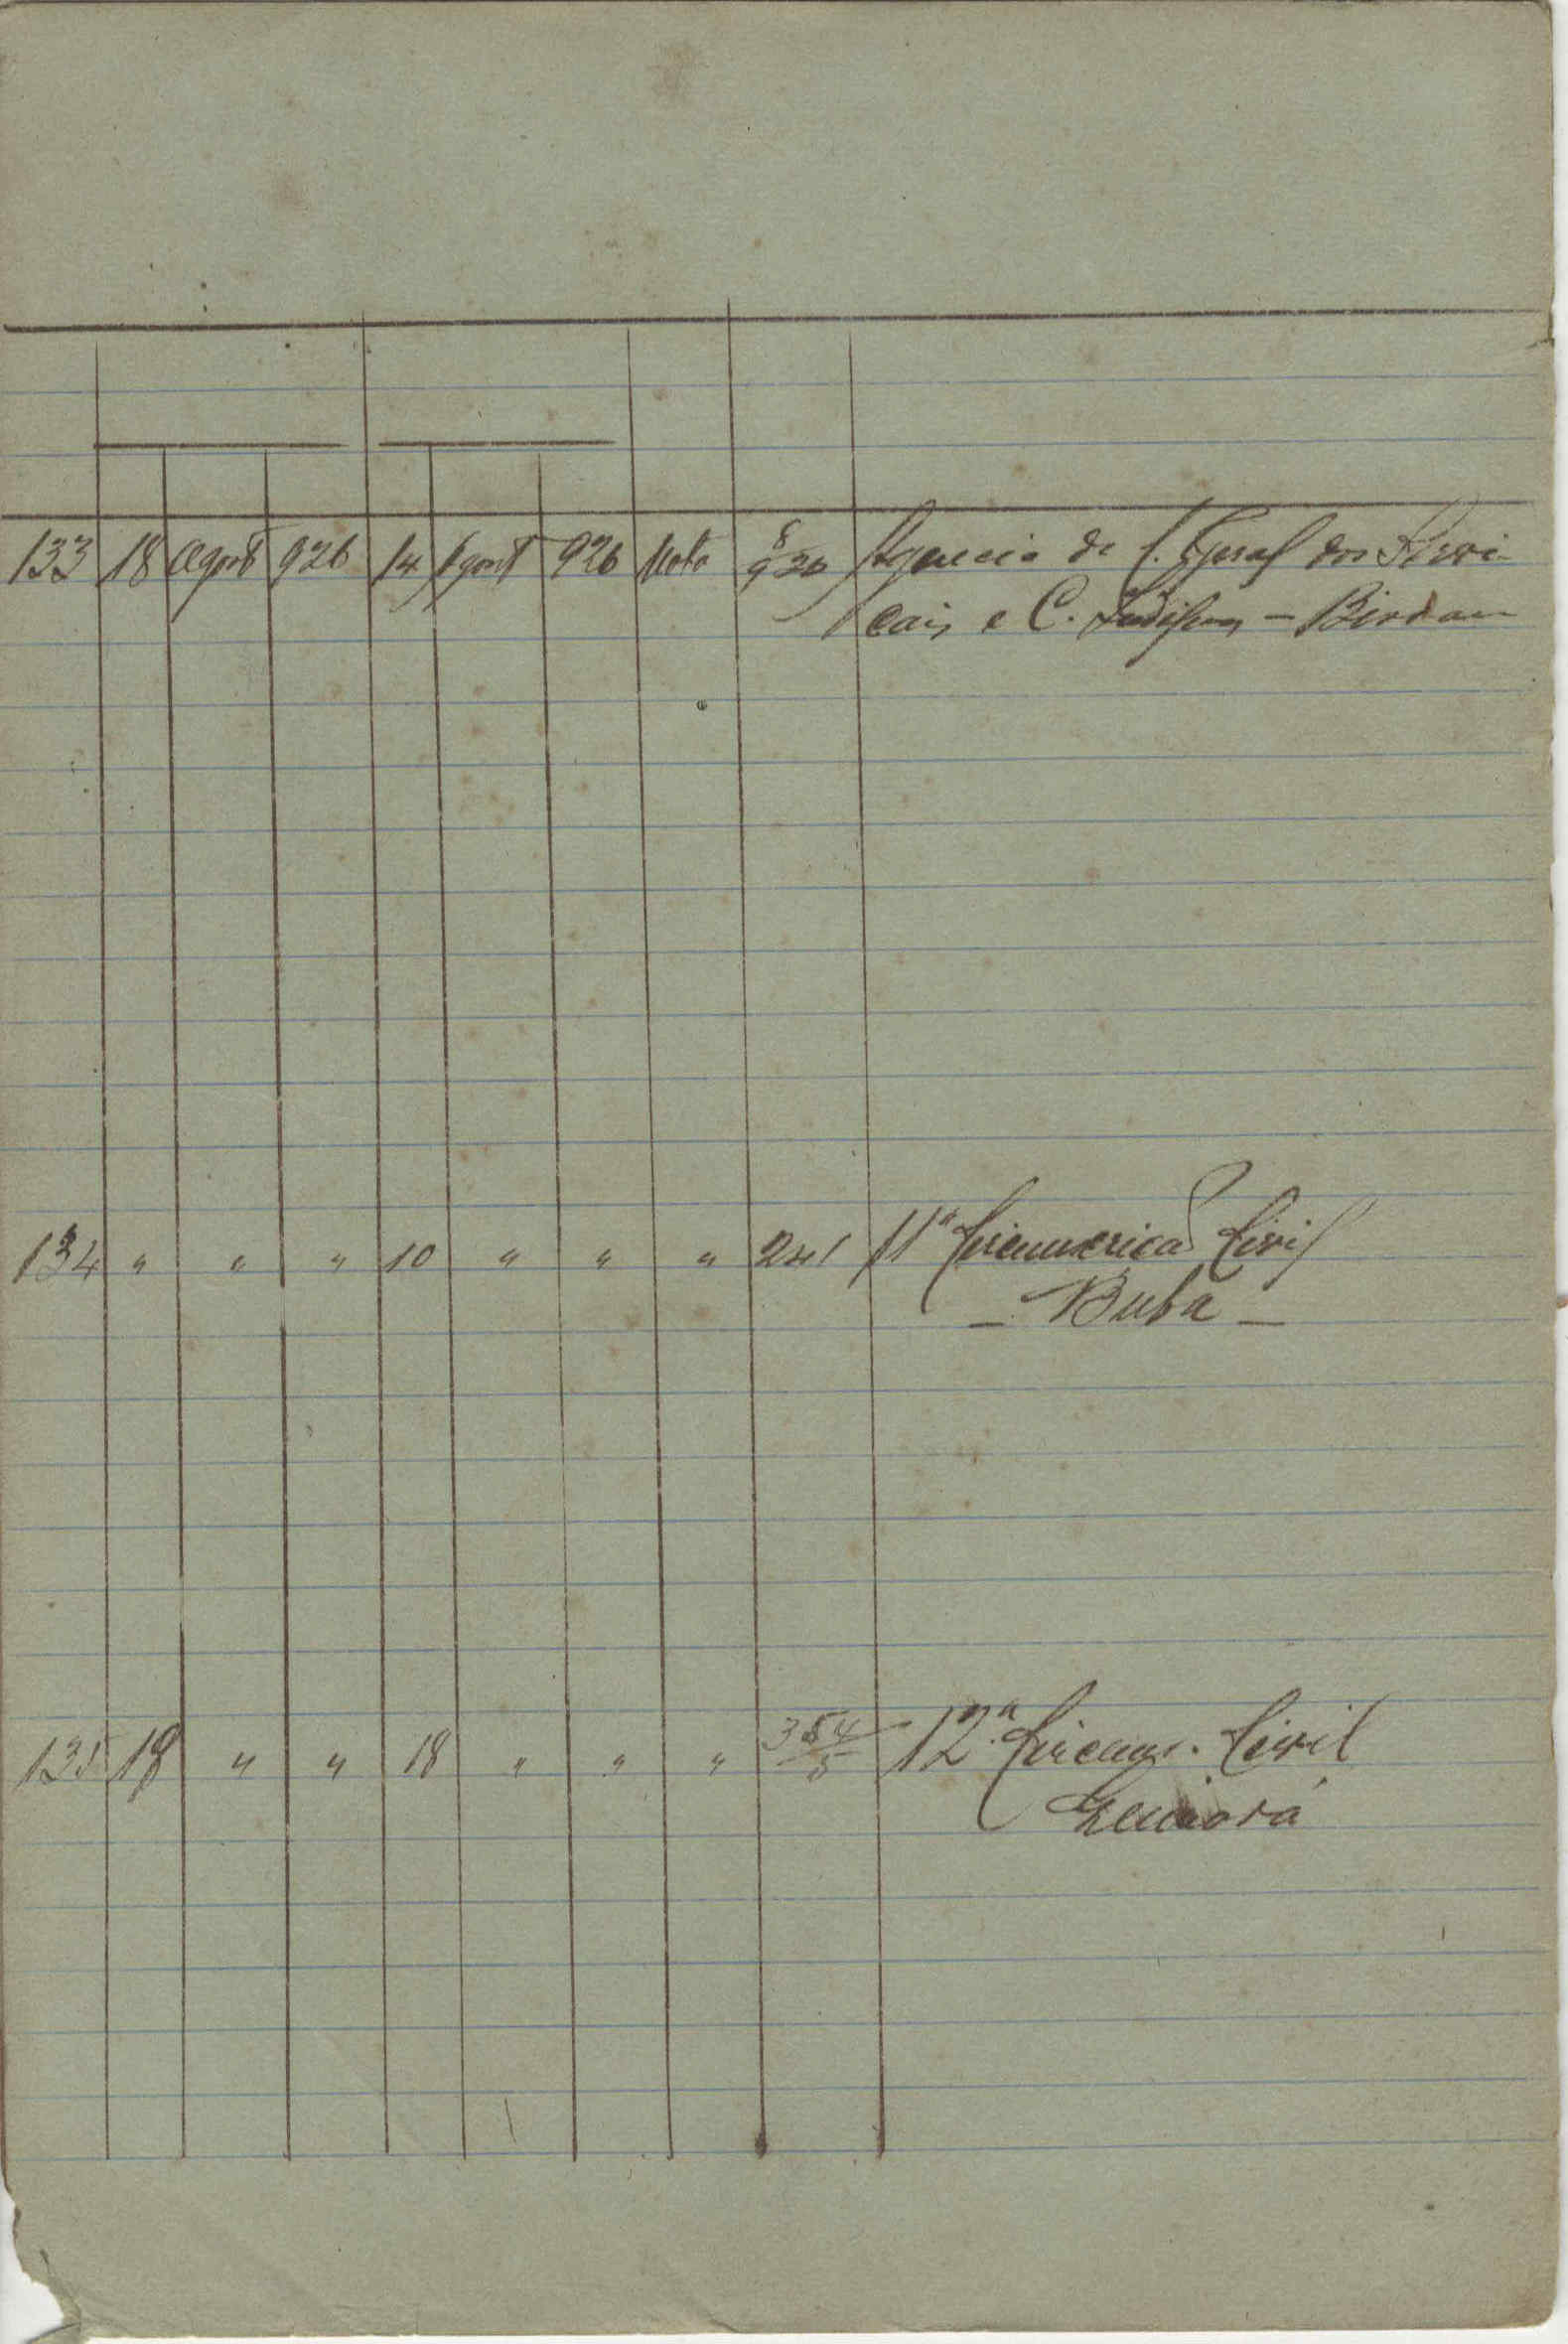 133 18 Agosto 926 14 Agosto 926 Nota 8/920 Agencia de C. Geral dos Servi-
cais e C. Indigena -
134 " " " 10 " " " 241 11ª Circunscrição Civil
- Buba -
135 18 " " 18 " " " 354/5 12ª Circuns. Civil